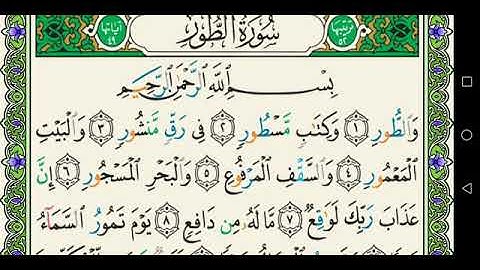 ترتيبها ٥٢
سُورَةُ الطُّورِ
آياتها ٤٩
بِسْمِ اللَّهِ الرَّحْمَٰنِ الرَّحِيمِ
وَالطُّورِ ۝١ وَكِتَابٍ مَّسْطُورٍ ۝٢ فِي رَقٍّ مَّنشُورٍ ۝٣ وَالْبَيْتِ
الْمَعْمُورِ ۝٤ وَالسَّقْفِ الْمَرْفُوعِ ۝٥ وَالْبَحْرِ الْمَسْجُورِ ۝٦ إِنَّ
عَذَابَ رَبِّكَ لَوَاقِعٌ ۝٧ مَّا لَهُ مِن دَافِعٍ ۝٨ يَوْمَ تَمُورُ السَّمَاءُ